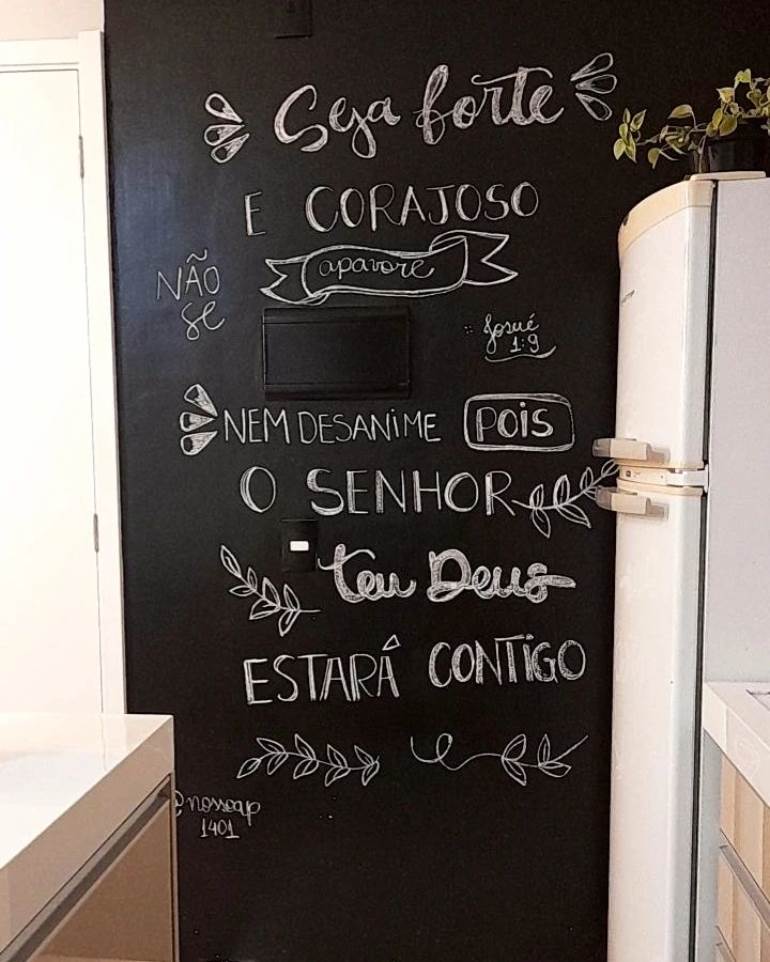 Seja forte
E CORAJOSO
NÃO
se
apavore
Josué
1:9
NEM DESANIME POIS
O SENHOR
teu Deus
ESTARÁ CONTIGO
@nossoap
1401